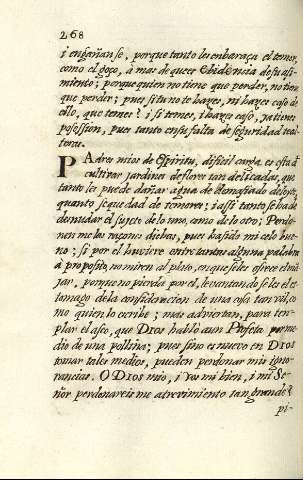 268
i engañanse, porque tanto les embaraça el temor,
como el goço, a mas de que es Ebidencia de su asi-
miento; porque quien no tiene que perder, no tiene
que perder; pues si tu no te hayes, ni hayes caso de
ello, que temes? i si temes, i hayes caso, ya tienes
possession, pues tanto en su falta de seguridad te al-
teras.
PAdres mios de Espiritu, dificil carga es esta de
cultivar jardines de flores tan delicadas, que
tanto les puede dañar agua de demasiado deleyte,
quanto sequedad de temores: i assi tanto se ha de
denudar el sujeto de lo uno, como de lo otro; Perdo-
nenme las raçones dichas, pues ha sido mi celo bue-
no; si por el huviere entre tantas alguna palabra
a proposito, no miren al plato, en que se les ofrece el mã-
jar, porque no pierda por el, levantandoseles el es-
tomago de la consideracion de una cosa tan vil, co-
mo quien lo escribe; mas adviertan, para tem-
plar el asco, que DIOS hablò a un Profeta por me-
dio de una pollina; pues sino es nuevo en DIOS
tomar tales medios, pueden perdonar mis igno-
rancias. O DIOS mio, i Yos mi bien, i mi Se-
ñor perdonareis me atrevimiento tan grande?
pi-